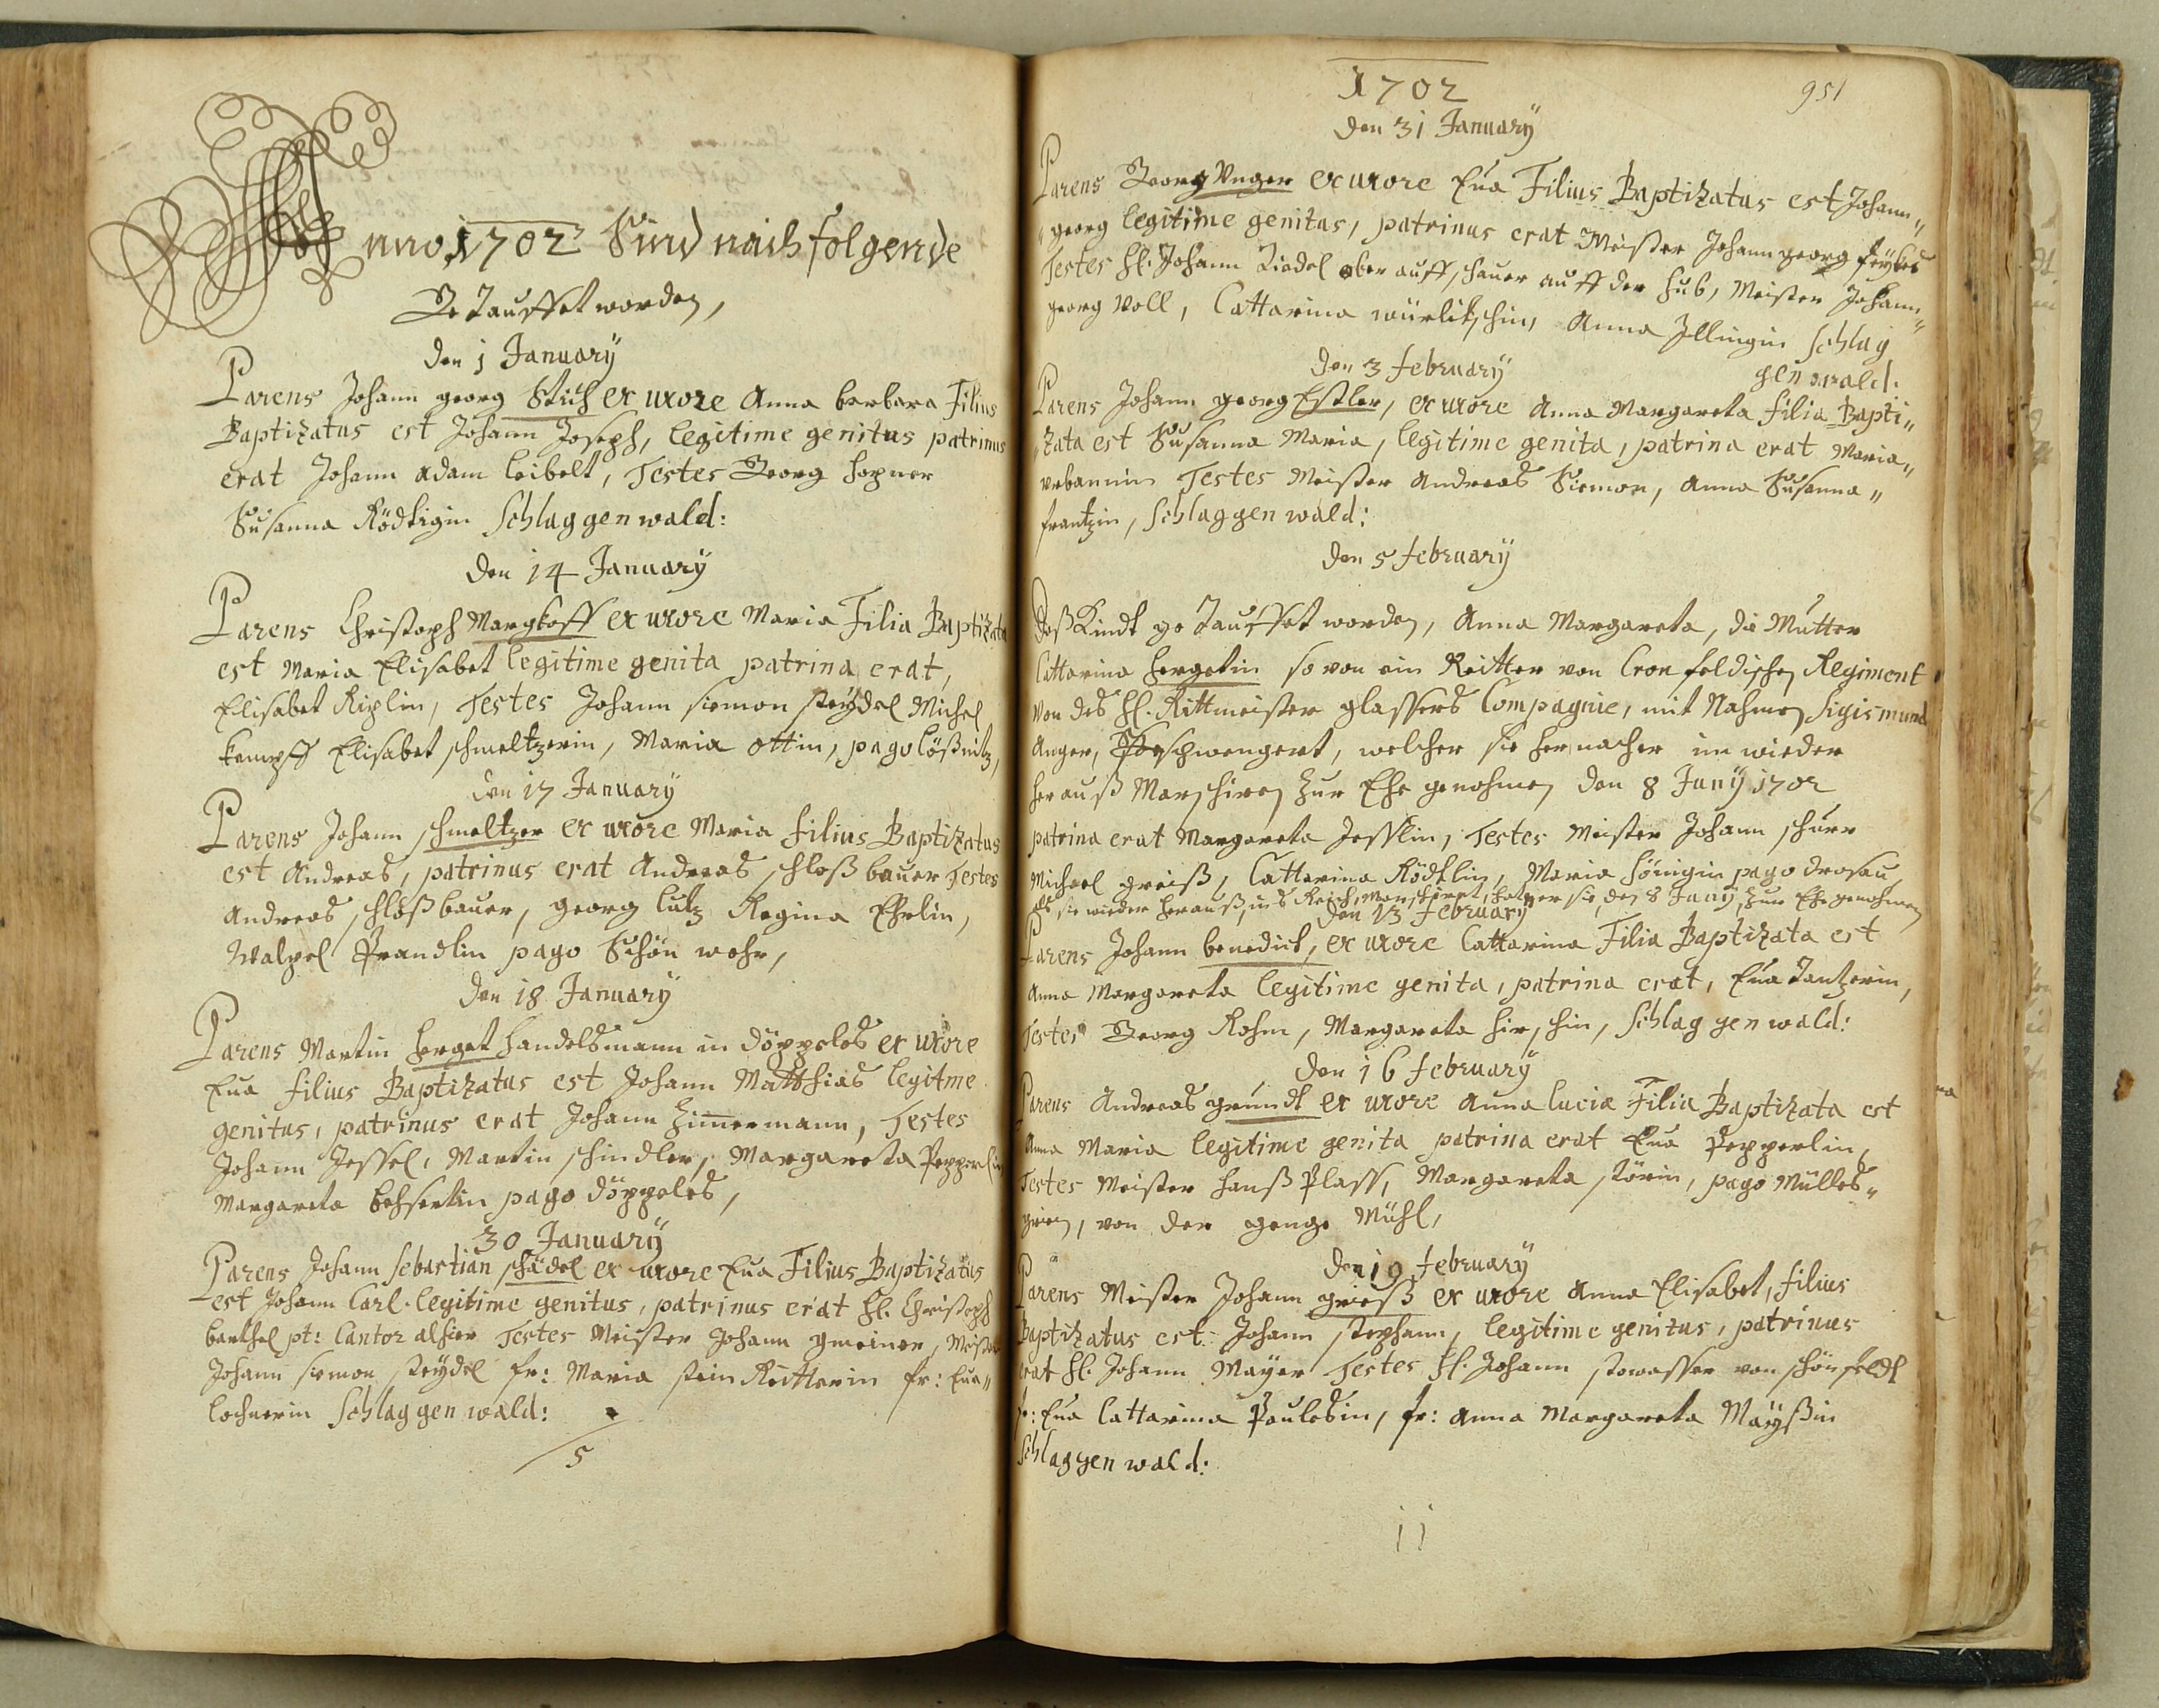 Anno 1702 Sind nachfolgende
Getauffet worden,
den 1 January
Parens Johann georg Stich ex uxore Anna barbara Filius
Baptizatus est Johann Joseph, legitime genitus patrinus
erat Johann adam leibelt, Testes Georg hopner
Susanna Rödtigin Schlaggenwald:
den 14 January
Parens Christoph Margkoff ex uxore Maria Filia Baptizata
est Maria Elisabet legitime genita patrina erat,
Elisabet Riplin, Testes Johann siemon steydel Michel
kempff Elisabet schmeltzerin, Maria ottin, pago lößnitz,
den 17 January
Parens Johann schmeltzer ex uxore Maria filius Baptizatus
est Andreas, patrinus erat Andreas schloßbauer Testes
Andreas schloßbauer, georg lutz Regina Ehrlin,
Walpel Prandlin pago Schön wehr,
den 18 January
Parens Martin herget handelsmann in döppeles ex uxore
Eua filius Baptizatus est Johann Matthias legitme
genitus, patrinus erat Johann Zimmermann, Testes
Johann Jessel, Martin schindler, Margareta Pepperlin
Margareta pago döppeles,
30 January
Parens Johann Sebastian schädel ex uxore Eua Filius Baptizatus
est Johann Carl legitime genitus, patrinus erat Hl. Christoph
barthel pt: Cantor alhier Testes Meister Johann gmeiner, Meister
Johann siemon steydel fr: Maria stein Reitterin fr: Eua"
lochnerin Schlaggenwald:
5
1702
951
den 31 January
Parens Georg Unger ex uxore Eua Filius Baptizatus est Johann"
"georg legitime genitus, patrinus erat Meister Johann georg
Testes Hl. Johann Riedel ober auffschauer auff der hub, Meister Johann"
georg Voll, Cattarina würlitschin, Anna Illingin Schlag
genwald:
den 3 february
Parens Johann georg Estler, ex uxore Anna Margareta filia Bapti"
"zata est Susanna Maria, legitime genita, patrina erat Maria"
urbannin Testes Meister Andreas Siemon, Anna Susanna"
frantzin, Schlaggenwald:
den 5 february
Daß Kindt ge Tauffet worden, Anna Margareta, die Mutter
Cattarina hergetin so von ein Reitter von Cron feldischen Regiment
von des Hl. Rittmeister glassers Compagnie, mit Nahmen Sigismund
Anger, Geschwengert, welcher sie hernacher im wieder
herauß Marschiren zur Ehe genohmen den 8 Juny 1702
patrina erat Margareta Jesslin, Testes Meister Johann schurr
Michael greiß, Cattarina Rödtlin, Maria hönigin pago drosau,
als sie wieder herauß ins Reich marschiret, hat er sie den 8 Juny zur Ehe genohmen
den 13 february
Parens Johann benedict, ex uxore Cattarina Filia Baptizata est
Anna Margareta legitime genita, patrina erat, Eua Tantzerin,
Testes Georg Rohm, Margareta hirschin, Schlaggenwald:
den 16 february
Parens Andreas grundt ex uxore Anna lucia Filia Baptizata est
Anna Maria legitime genita patrina erat Eua Pepperlin,
Testes Meister hanß Plass, Margareta störin, pago Mülles"
grien, von der genge Mühl,
den 19 february
Parens Meister Johann grieß ex uxore Anna Elisabet, filius
Baptizatus est Johann stephann, legitime genitus, patrinus
erat Hl. Johann Mayer Testes Hl. Johann stowasser von schönfeldt
fr: Eua Cattarina Paulesin, fr: Anna Margareta Mayßin
Schlaggenwald:
11